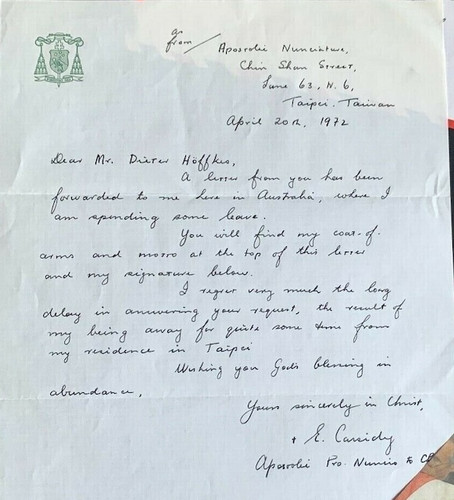 as
from / Apostolic Nunciature,
Chin Shan Street,
Lane 63, N. 6,
Taipei. Taiwan
April 20th, 1972
Dear Mr. Dieter Höffkes,
A letter from you has been
forwarded to me here in Australia, where I
am spending some leave.
You will find my coat-of-
arms and motto at the top of this letter
and my signature below.
I regret very much the long
delay in answering your request, the result of
my being away for quite some time from
my residence in Taipei
Wishing you God's blessing in
abundance,
Yours sincerely in Christ,
+ E. Cassidy
Apostolic Pro. Nuncio to